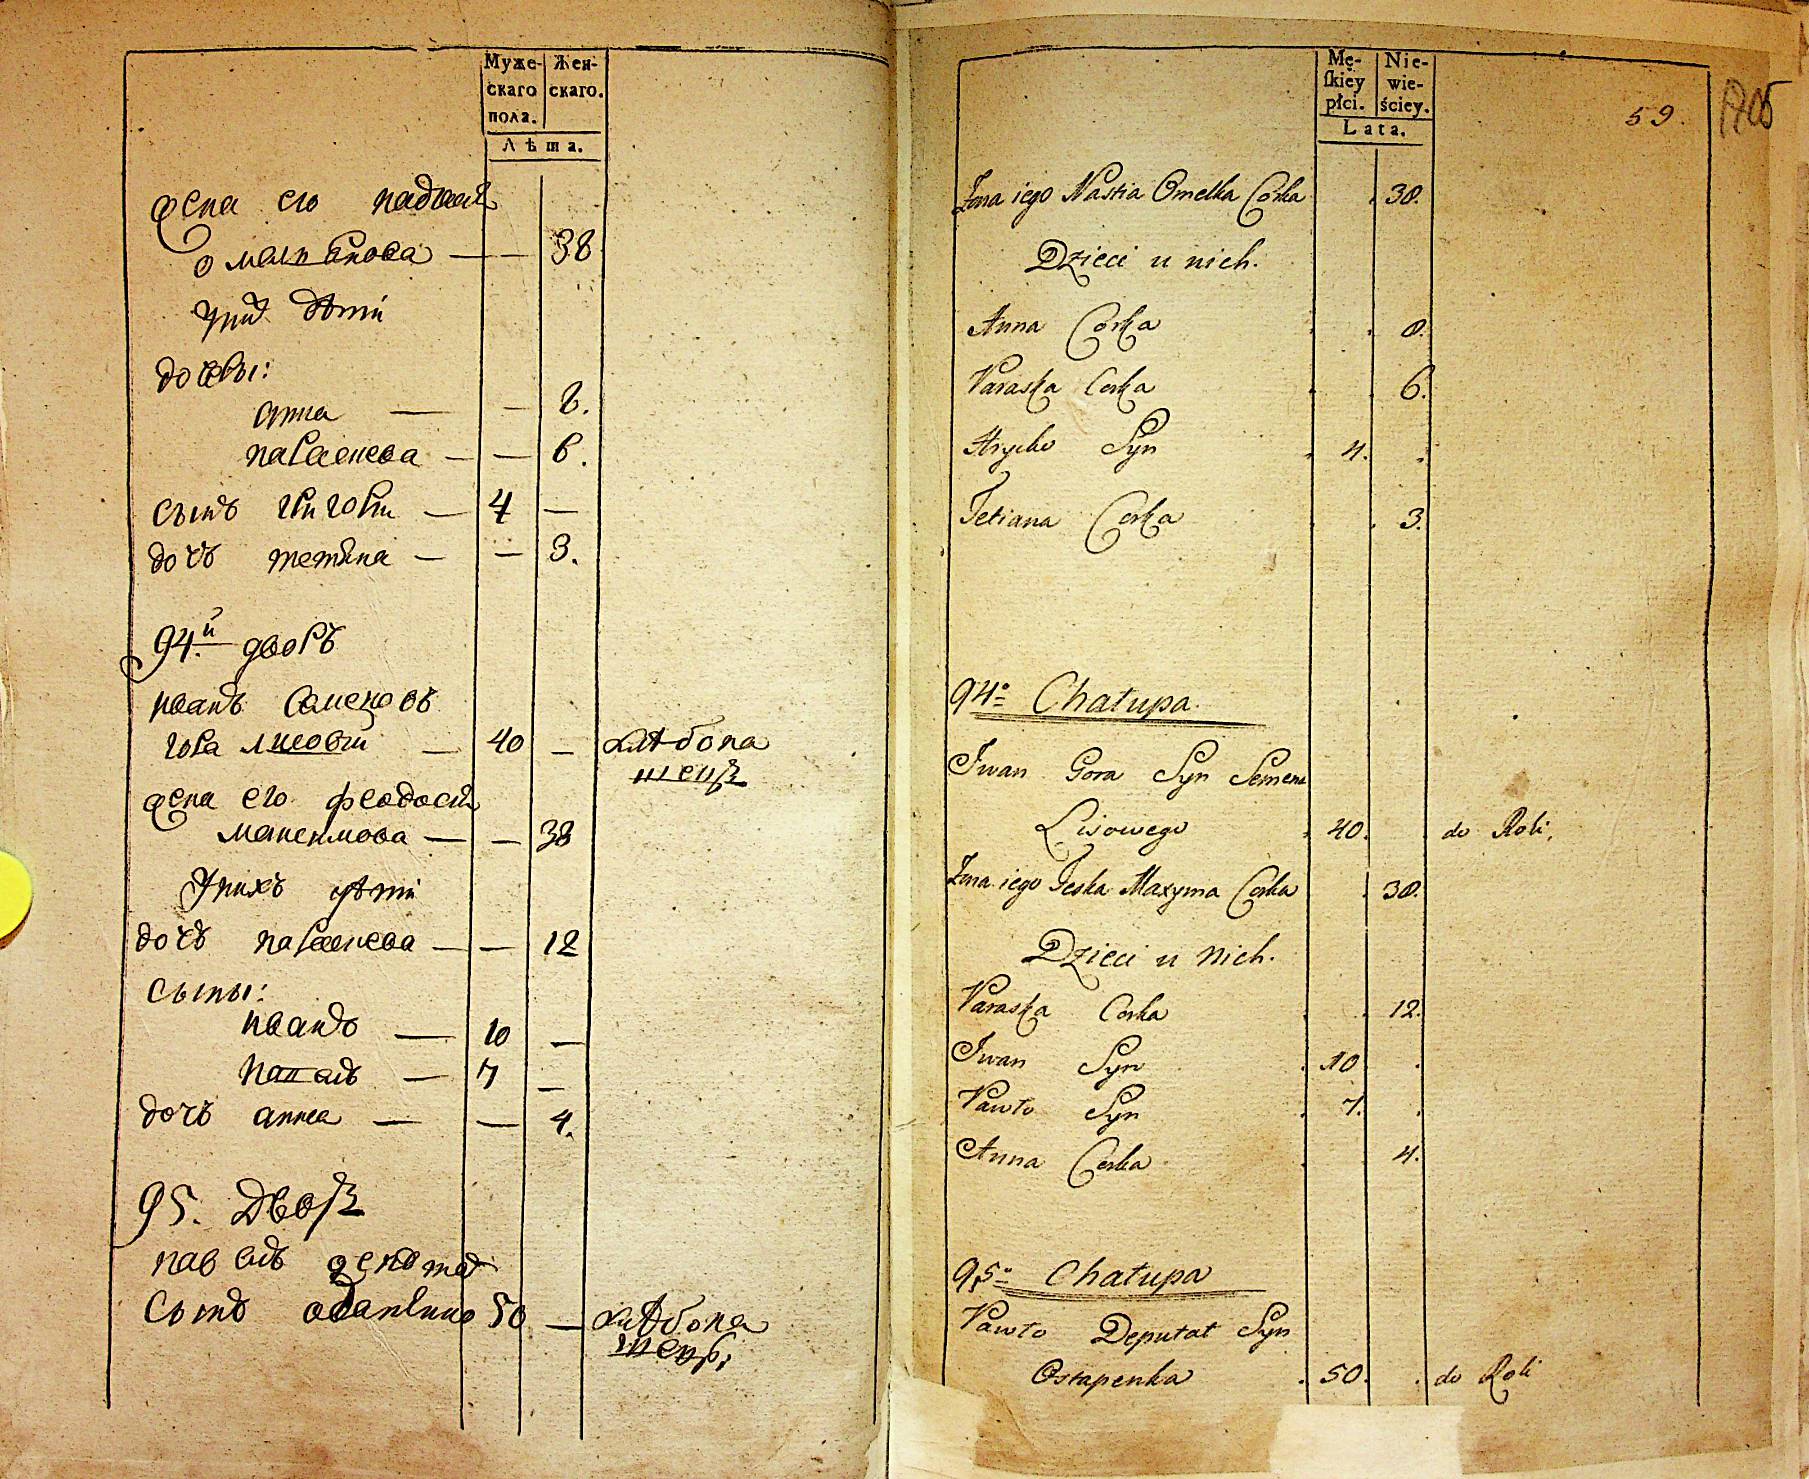 Муже-
скаго
пола.
Жен-
скаго.
Лѣта.
жена его
38
дѣти
дочеры:
анна — — 8.
параскева — — 6.
сынъ григори — 4 —
дочъ тетяна — — 3.
94.й дворъ
иванъ семеновъ
гора лисовии — 40 — хлѣбопа
шецъ
жена его феодосия
максимова — — 38
У нихъ дѣти
дочъ параскева — — 12
сыны:
иванъ — 10 —
павелъ — 7 —
дочъ анна — — 4.
95. Дворъ
павелъ депутат
сынъ 50 — хлѣбопа
шецъ
Mę-
skiey
płci.
Nie-
wie-
ściey.
Lata.
59.
Żona iego Nastia Omelka Corka 38.
Dzieci u nich.
Anna Corka 8.
Paraska Corka 6.
Hrycko Syn 4.
Tetiana Corka 3.
94o Chałupa.
Jwan Gora Syn Semena
Lisowego 40. do Roli.
Żona iego Feska Maxyma Corka 38.
Dzieci u Nich.
Paraska Corka 12.
Jwan Syn 10
Pawło Syn 7.
Anna Corka 4.
95o Chałupa
Pawło Deputat Syn
Ostapenka 50. do Roli